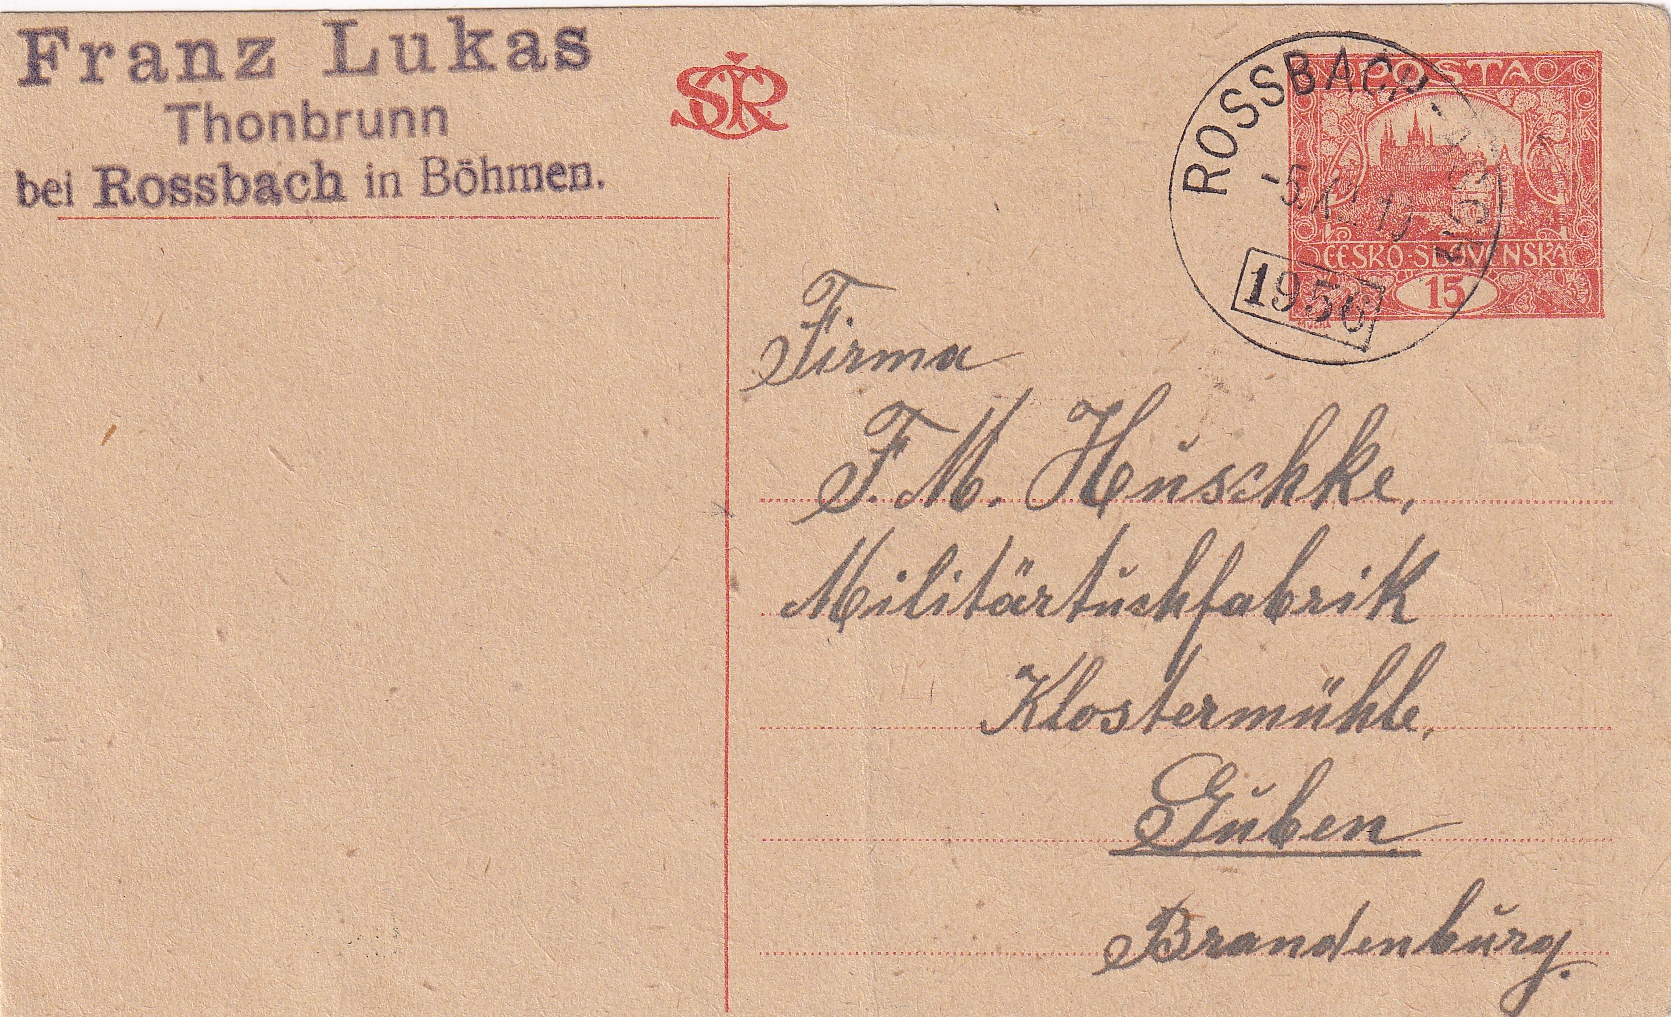 Franz Lukas
Thonbrunn
bei Rossbach in Böhmen.
SČR
POSTA
ČESKO-SLOVENSKÁ
15
MUCHA
ROSSBACH
1956
Firma
F. M. Huschke,
Militärtuchfabrik
Klostermühle,
Guben
Brandenburg.